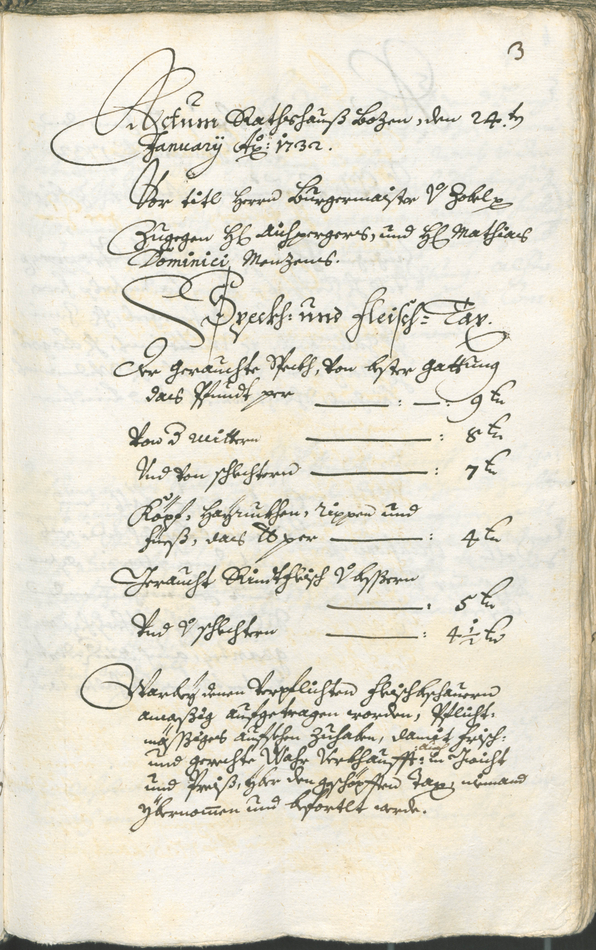 3
Actum Rathshauß Bozen, den 24.ten
January Ao: 1732.
Vor titl Herrn Burgermaister v Zobel
Zugegen H: Aichpergers, und H: Mathias
Dominici Menzens.
Speckh- und Fleisch-Tax.
Der geraichte Speckh, von bester gattung
dass Pfundt per : 9 kr
von d mittern : 8 kr
Und von schlechtern : 7 kr
Köpf, rippen und
Fueß, dass lb per : 4 kr
Geraicht Rindtfleisch v bessern
: 5 kr
Und v schlechtern : 4 1/2 kr
Warbey denen verpflichten Fleischbschauern
aufgetragen worden, Pflicht-
mässiges aufsehen zuhaben, damit frisch-
und gerechte Wahr verkhaufft: auch in Gwicht
und Preiß, yber den gschöpfften Tax, niemand
ybernommen und befortlt werde.